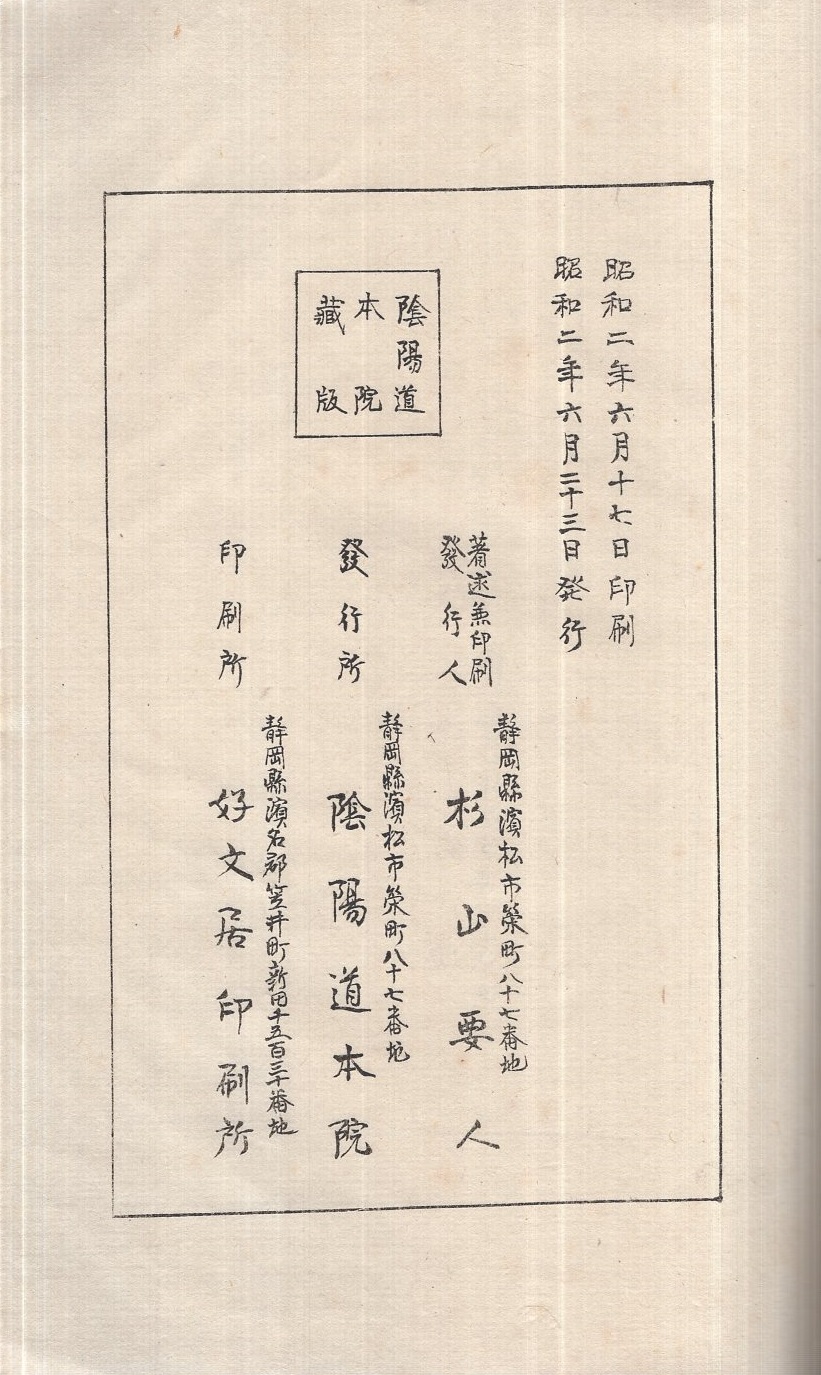 昭和二年六月十七日印刷
昭和二年六月二十三日発行
陰陽道
本院
藏版
著述兼印刷
發行人
靜岡縣濱松市榮町八十七番地
杉山要人
發行所
靜岡縣濱松市榮町八十七番地
陰陽道本院
印刷所
靜岡縣濱名郡笠井町新田千五百三十番地
好文居印刷所